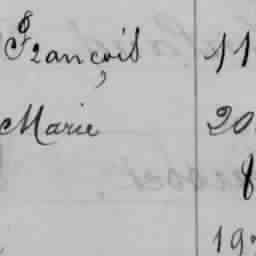 François 11
Marie 20
8
19